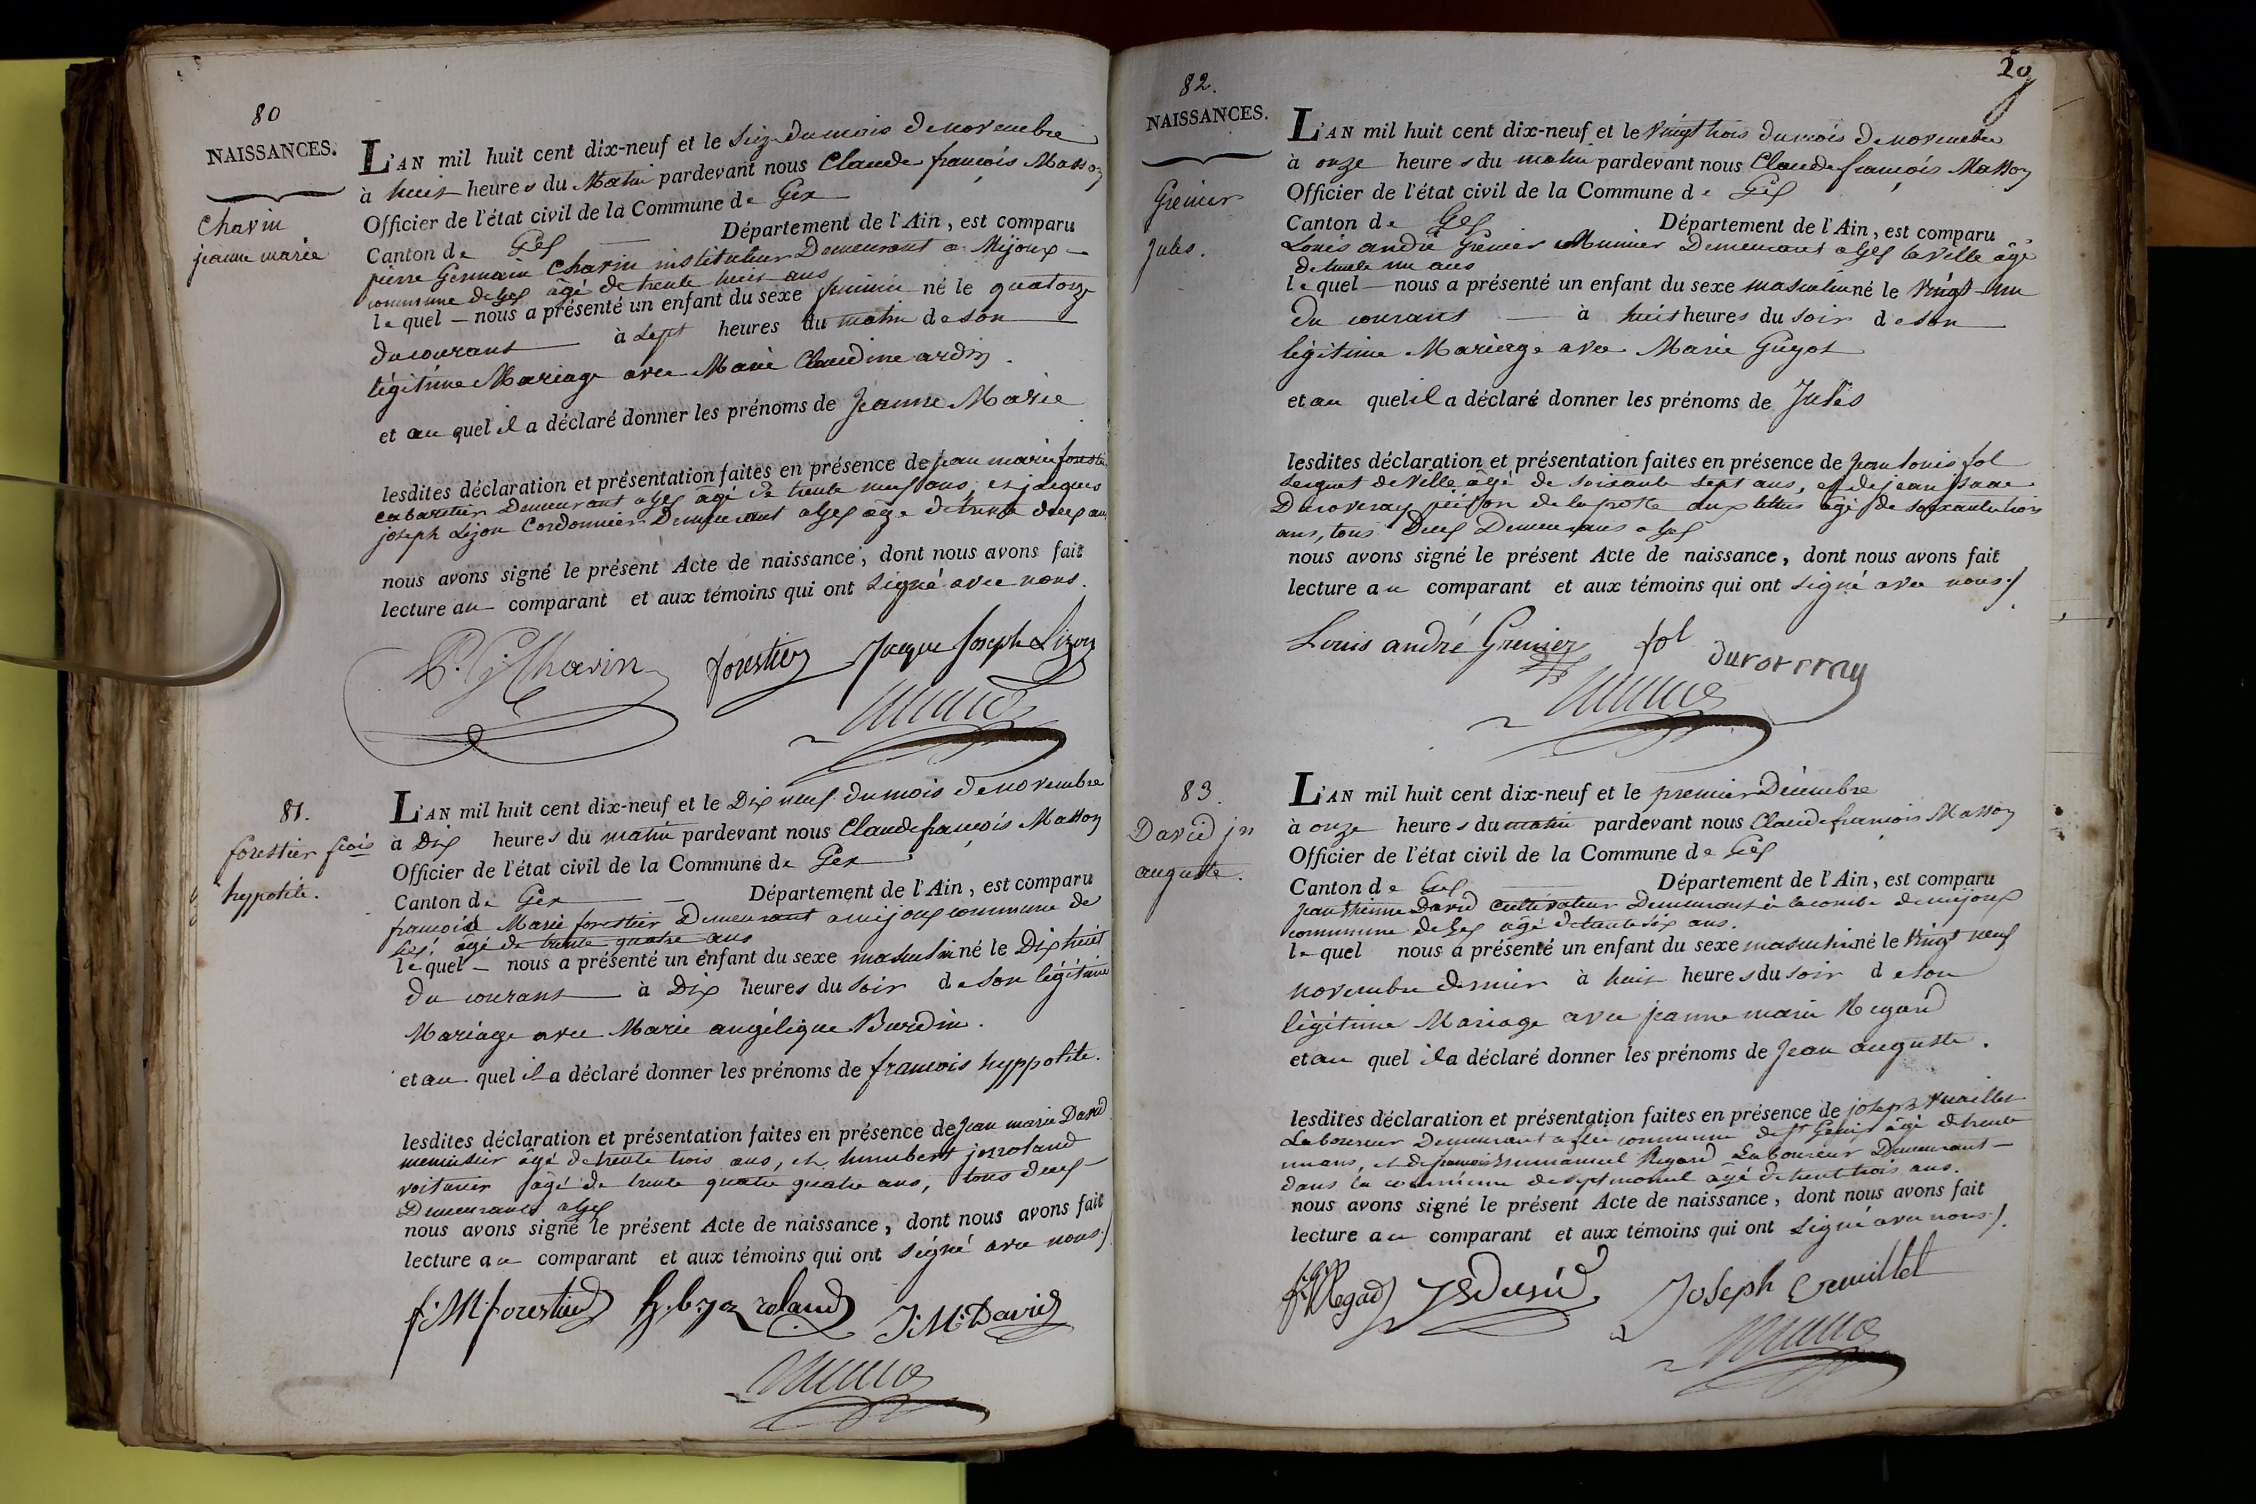 80
NAISSANCES.
Chavin
jeanne marie
L'AN mil huit cent dix-neuf et le Seize du mois de novembre
à huit heures du Matin pardevant nous Claude françois Masson
Officier de l'état civil de la Commune de Gex
Canton de Gex Département de l'Ain, est comparu
pierre Germain Chavin instituteur Demeurant a Mijoux
commune de Gex âgé de trente huit ans
lequel nous a présenté un enfant du sexe feminin né le quatorze
du courant à Sept heures du matin de son
légitime Mariage avec Marie Claudine ardin.
et au quel il a déclaré donner les prénoms de Jeanne Marie
lesdites déclaration et présentation faites en présence de jean marie forestier
cabaretier Demeurant a Gex âgé de trente neuf ans, et jacques
joseph Lizon Cordonnier Demeurant a Gex âgé de trente deux ans
nous avons signé le présent Acte de naissance, dont nous avons fait
lecture au comparant et aux témoins qui ont signé avec nous.
P. G. Chavin forestier Jacque Joseph Lizon
81.
forestier fcois
hyppolite.
L'AN mil huit cent dix-neuf et le Dix neuf du mois de novembre
à Dix heures du matin pardevant nous Claude françois Masson
Officier de l'état civil de la Commune de Gex
Canton de Gex Département de l'Ain, est comparu
françois Marie forestier Demeurant a mijoux commune de
Gex âgé de trente quatre ans
lequel nous a présenté un enfant du sexe masculin né le Dix huit
du courant à Dix heures du soir de son légitime
Mariage avec Marie angélique Burdin.
et au quel il a déclaré donner les prénoms de françois hyppolite.
lesdites déclaration et présentation faites en présence de Jean marie David
menuisier âgé de trente trois ans, et humbert jozroland
voiturier âgé de trente quatre quatre ans, tous deux
Demeurants a Gex
nous avons signé le présent Acte de naissance, dont nous avons fait
lecture au comparant et aux témoins qui ont signé avec nous./.
f. M. forestier joz roland J. M. David
29
82.
NAISSANCES.
Grenier
Jules.
L'AN mil huit cent dix-neuf et le vingt trois du mois de novembre
à onze heures du matin pardevant nous Claude françois Masson
Officier de l'état civil de la Commune de Gex
Canton de Gex Département de l'Ain, est comparu
Louis andré Grenier Munier Demeurant a Gex la ville âgé
de trente un ans
lequel nous a présenté un enfant du sexe masculin né le Vingt un
du courant à huit heures du soir de son
légitime Mariage avec Marie Guyot
et au quel il a déclaré donner les prénoms de Jules
lesdites déclaration et présentation faites en présence de Jean Louis fol
Sergent de ville âgé de soixante sept ans, et de jean isaac
Duroveray piéton de la poste aux lettres âgé de soixante trois
ans, tous Deux Demeurans a Gex
nous avons signé le présent Acte de naissance, dont nous avons fait
lecture au comparant et aux témoins qui ont signé avec nous./.
Louis andré Grenier fol duroveray
83.
David jn
auguste.
L'AN mil huit cent dix-neuf et le premier Décembre
à onze heures du matin pardevant nous Claude françois Masson
Officier de l'état civil de la Commune de Gex
Canton de Gex Département de l'Ain, est comparu
Jean Etienne David cultivateur Demeurant à la combe de mijoux
commune de Gex âgé de trente six ans.
lequel nous a présenté un enfant du sexe masculin né le Vingt neuf
novembre dernier à huit heures du soir de son
légitime Mariage avec jeanne marie Regard
et au quel il a déclaré donner les prénoms de Jean auguste.
lesdites déclaration et présentation faites en présence de joseph Vuaillet
Laboureur Demeurant a commune de St Genis âgé de trente
un ans, et de françois Emmanuel Regard Laboureur Demeurant
dans la commune de Septmoncel âgé de trente trois ans.
nous avons signé le présent Acte de naissance, dont nous avons fait
lecture au comparant et aux témoins qui ont signé avec nous./.
Regad Joseph Vuaillet